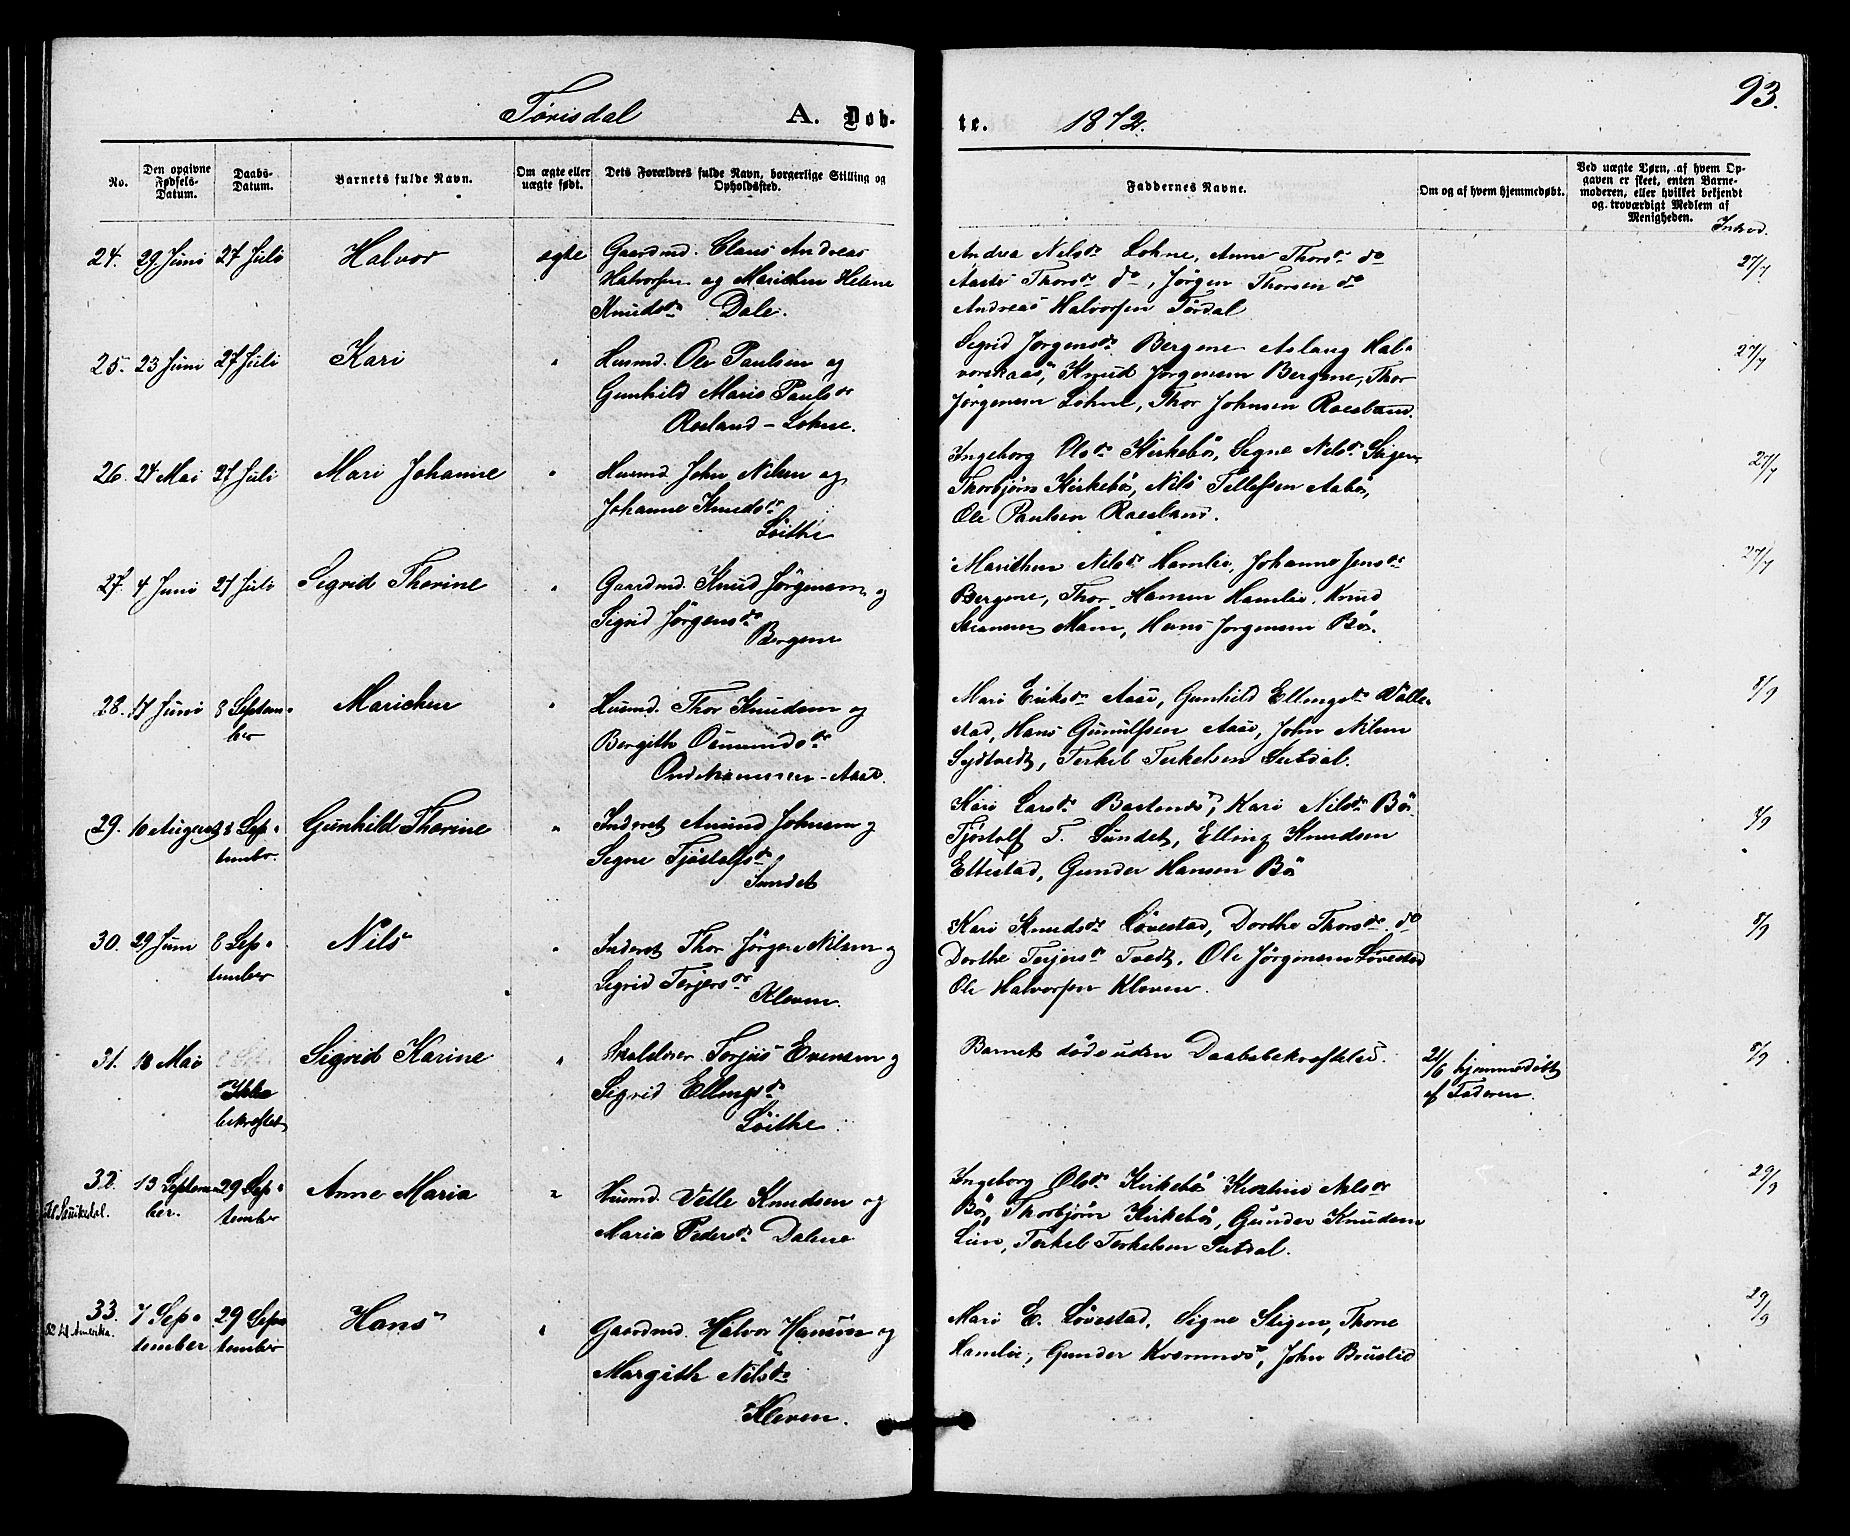 Tørisdal A. Døb-
te. 1872. 93.
No.
Den opgivne
Fødsels-
Datum.
Daabs-
Datum.
Barnets fulde Navn.
Om ægte eller
uægte født.
Dets Forældres fulde Navn, borgerlige Stilling og
Opholdssted.
Faddernes Navne.
Om og af hvem hjemmedøbt.
Ved uægte Børn, af hvem Op-
gaven er skeet, enten Barne-
moderen, eller hvilket bekjendt
og troværdigt Medlem af
Menigheden.
24. 29. Juni 27 Juli Halvor ægte Gaardmd. Claus Andreas
Halvorsen og Marichen Helene
Knudsdr Dale.
Andrea Nilsdr Lohne, Anne Thorsdr do
Aaste Thorsdr do, Jørgen Thorsen do
Andreas Halvorsen Tørdal
27/7
25. 23 Juni 27 Juli Kari " Husmd. Ole Paulsen og
Gunhild Marie Paulsdr
Roeland - Lohne.
Sigrid Jørgensdr Bergene Aslaug Hal-
vorskaas, Knud Jørgensen Bergene, Thor
Jørgensen Lohne, Thor Johnsen Roeland.
27/7
26. 24 Mai 27 Juli Mari Johanne " Husmd. John Nilsen og
Johanne Knudsdr
Løithe
Ingeborg Olsdr Kirkebø, Signe Nilsdr Stigen
Thorbjørn Kirkebø, Nils Tellefsen Aabø,
Ole Paulsen Roeland.
27/7
27. 4 Juni 27 Juli Sigrid Thorine " Gaardmd. Knud Jørgensen og
Sigrid Jørgensdr
Bergene
Marithen Nilsdr Hamlie, Johanne Jensdr
Bergene, Thor Hansen Hamlie, Knud
Moen, Hans Jørgensen Bø.
27/7
28. 17 Juni 8 Septem-
ber
Marichen " Husmd. Thor Knudsen og
Bergith Osmundsdr
Mari Eriksdr Aase, Gunhild Ellingsdr Valle-
stad, Hans Gunulfsen Aase, John Nilsen
Sydtvedt, Terkel Terkelsen Sutdal.
8/9
29. 10 August 8 Sep-
tember.
Gunhild Thorine " Inderst Anund Johnsen og
Signe Tjøstolfsdr
Sundet
Kari Larsdr Bastenes, Kari Nilsdr Bø
Tjøstolf T. Sundet, Elling Knudsen
Ettestad, Gunder Hansen Bø
8/9
30. 29 Juni 8 Sep-
tember
Nils " Inderst Thor Jørgen Nilsen og
Sigrid Terjersdr
Kleven.
Kari Knudsdr Løvestad, Dorthe Thorsdr do
Dorthe Terjersdr Tvedt, Ole Jørgensen Løvestad
Ole Halvorsen Kleven.
8/9
31. 18 Mai
Ikke
bekræftet
Sigrid Karine " Skolelærer Torjus Evensen og
Sigrid Ellingsdr
Løithe
Barnet døde uden Daabsbekræftelse.
21/6 hjemmedøbt
af Faderen.
8/9
32. 13 Septem-
ber.
29 Sep-
tember
Anne Maria " Husmd. Vetle Knudsen og
Maria Pedersdr Dalene
Ingeborg Olsdr Kirkebø Kirstine Nilsdr
Bø, Thorbjørn Kirkebø, Gunder Knudsen
Lien, Terkel Terkelsen Sutdal.
29/9
33. 7 Sep-
tember
29 Sep-
tember
82 til Amerika.
Hans " Gaardmd. Halvor Hansen og
Margith Nilsdr
Kleven.
Mari E. Løvestad, Signe Stigen, Thone
Hamlie, Gunder Kvernnes, John Bruslid
29/9